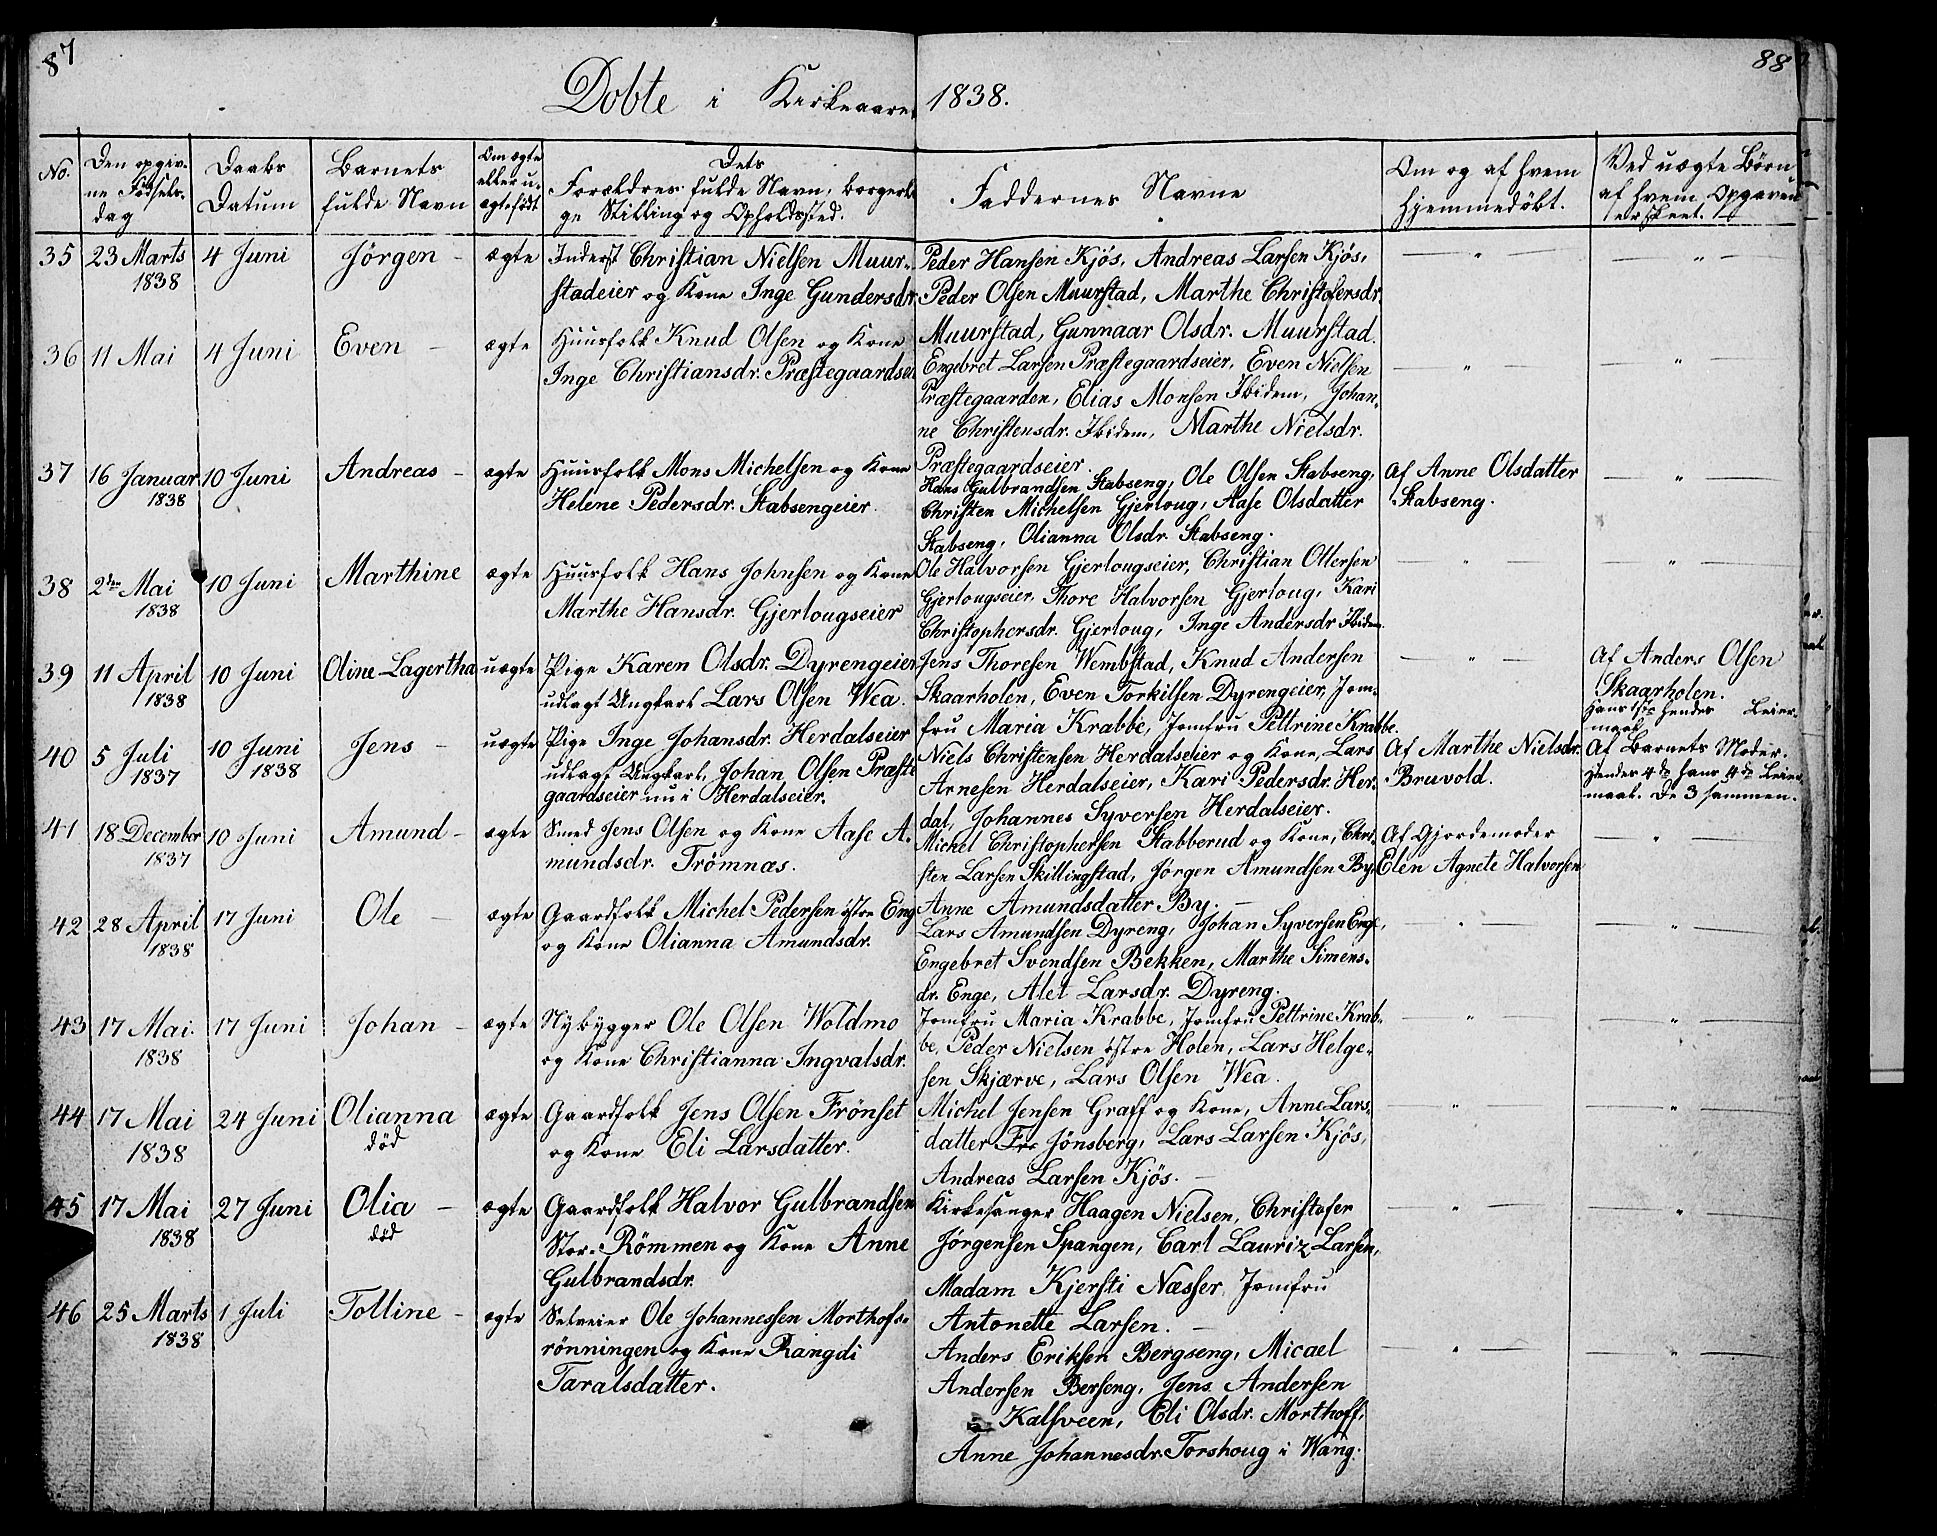 87
88
Dobte i Kirkeaaret 1838.
No.
Den opgiv-
ne Fødsels-
dag
Daabs
Datum
Barnets
fulde Navn
Om ægte
eller u-
ægtefødt
Dets
Forældres fulde Navn, borgerli
ge Stilling og Opholdssted.
Faddernes Navne
Om og af hvem
hjemmedøbt.
Ved uægte Børn
af hvem Opgaven
er skeet.
35 23 Marts 4 Juni Jörgen - ægte Inderst Christian Nielsen Muur-
1838 stadeier og Kone Inge Gundersdr.
Peder Hansen Kjös, Andreas Larsen Kjös,
Peder Olsen Muurstad, Marthe Christofersdr.
Muurstad, Gunnaar Olsdr. Muurstad.
36 11 Mai 4 Juni Even - ægte Huusfolk Knud Olsen og Kone
Inge Christiansdr. Præstegaardsei
Engebret Larsen Præstegaardseier, Even Nielsen
Præstegaarden, Elias Monsen Ibidem, Johan-
ne Christensdr. Ibidem, Marthe Nielsdr.
Præstegaardseier.
37 16 Januar 10 Juni Andreas - ægte Huusfolk Mons Michelsen og Kone
1838 Helene Pedersdr. Stabsengeier.
Hans Gulbrandsen Stabseng, Ole Olsen Stabseng,
Christen Michelsen Gjerloug, Aase Olsdatter
Stabseng, Olianna Olsdr. Stabseng.
Af Anne Olsdatter
Stabseng.
38 2den Mai 10 Juni Marthine ægte Huusfolk Hans Johnsen og Kone
1838 Marthe Hansdr. Gjerlougseier
Ole Halvorsen Gjerlougseier, Christian Ottersen
Gjerlougseier, Thore Halvorsen Gjerloug, Kari
Christophersdr. Gjerloug, Inge Andersdr Ibidem.
39 11 April 10 Juni Oline Lagertha uægte Pige Karen Olsdr. Dyrengeier
1838 udlagt Ungkarl Lars Olsen Wea.
Jens Thoresen Wembstad, Knud Andersen
Skaarholen, Even Torkilsen Dyrengeier, Jom-
fru Maria Krabbe, Jomfru Pettrine Krabbe.
Af Anders Olsen
Skaarholen.
Hans 1ste hendes Leier-
maal
40 5 Juli 10 Juni Jens - uægte Pige Inge Johansdr. Herdalseier
1837 1838 udlagt Ungkarl, Johan Olsen Præste
gaardseier nu i Herdalseier.
Niels Christensen Herdalseier og Kone, Lars
Arnesen Herdalseier, Kari Pedersdr. Her-
dal, Johannes Syversen Herdalseier.
Af Marthe Nielsdr.
Bruvold.
Af Barnets Moder.
Hendes 4de hans 4de Leier
maal. De 3 sammen.
41 18 December 10 Juni Amund - ægte Smed Jens Olsen og Kone Aase A-
1837 mundsdr. Trömnæs.
Michel Christophersen Stabberud og Kone, Chri-
sten Larsen Skillingstad, Jörgen Amundsen By,
Anne Amundsdatter By. -
Af Gjordemoder
Elen Agnete Halvorsen
42 28 April 17 Juni Ole - ægte Gaardfolk Michel Pedersen østre Eng
1838 og Kone Olianna Amundsdr.
Lars Amundsen Dyreng, Johan Syversen Enge,
Engebret Svendsen Bekken, Marthe Simens-
dr. Enge, Alet Larsdr. Dyreng.
43 17 Mai. 17 Juni Johan - ægte Nybygger Ole Olsen Woldmo
1838 og Kone Christianna Ingvalsdr.
Jomfru Maria Krabbe, Jomfru Pettrine Krab-
be, Peder Nielsen östre Holen, Lars Helge-
sen Skjærve, Lars Olsen Wea.
44 17 Mai 24 Juni Olianna ægte Gaardfolk Jens Olsen Frönset
1838 död og Kone Eli Larsdatter.
Michel Jensen Graff og Kone, Anne Lars-
datter Fre Jönsberg, Lars Larsen Kjös,
Andreas Larsen Kjös. -
45 17 Mai 27 Juni Olia - ægte Gaardfolk Halvor Gulbrandsen
1838 död Stor-Römmen og Kone Anne
Gulbrandsdr.
Kirkesanger Haagen Nielsen, Christofer
Jörgensen Spangen, Carl Lauriz Larsen,
Madam Kjersti Næsser, Jomfru
Antonette Larsen. -
46 25 Marts 1 Juli Tolline - ægte Selveier Ole Johannessen Morthofs-
1838 rönningen og Kone Rangdi
Taralsdatter.
Anders Eriksen Bergseng, Micael
Andersen Berseng, Jens Andersen
Kalsveen, Eli Olsdr. Morthoff,
Anne Johannesdr. Torshoug i Wang.